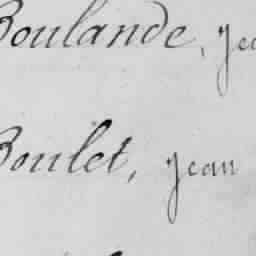 Boulande, Jea
Boulet, Jean